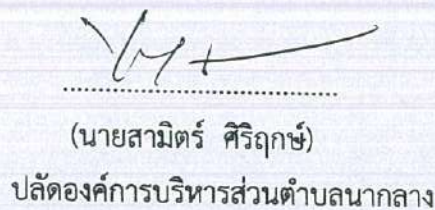 (นายสามิตร์ ศิริฤกษ์)
ปลัดองค์การบริหารส่วนตำบลนากลาง